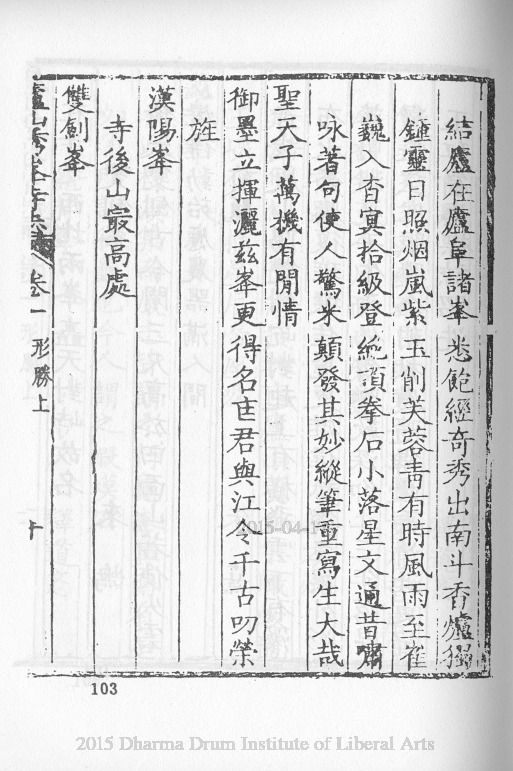 結廬在廬阜諸峯悉飽經奇秀出南斗香爐獨
鍾靈日照烟嵐紫玉削芙蓉青有時風雨至崔
巍入杳冥拾級登絶頂拳石小落星文通昔嘯
咏著句使人驚米顛發其妙縱筆重寫生大哉
聖天子萬機有閒情
御墨立揮灑茲峯更得名匡君與江令千古叨榮
旌
漢陽峯
寺後山最高處
雙劍峯
廬山秀峯寺志 卷一 形勝上 十
103
2015-04-1
2015 Dharma Drum Institute of Liberal Arts